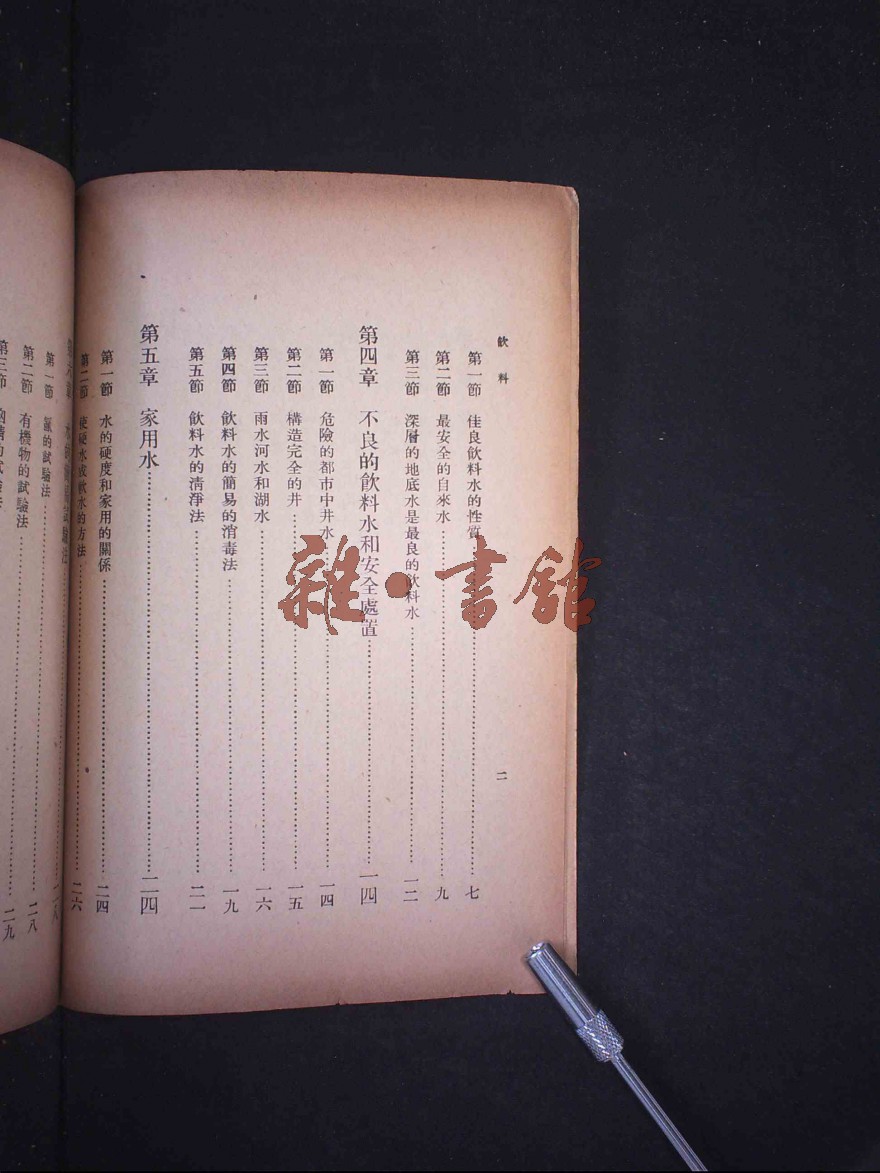 飲料
第一節 佳良飲料水的性質……七
第二節 最安全的自來水……九
第三節 深層的地底水是最良的飲料水……一二
第四章 不良的飲料水和安全處置……一四
第一節 危險的都市中井水……一四
第二節 構造完全的井……一五
第三節 雨水河水和湖水……一六
第四節 飲料水的簡易的消毒法……一九
第五節 飲料水的清淨法……二一
第五章 家用水……二四
第一節 水的硬度和家用的關係……二四
第二節 使硬水成軟水的方法……二六
二
第一節 氯的試驗法……二八
第二節 有機物的試驗法……二八
第三節……二九
雜·書館